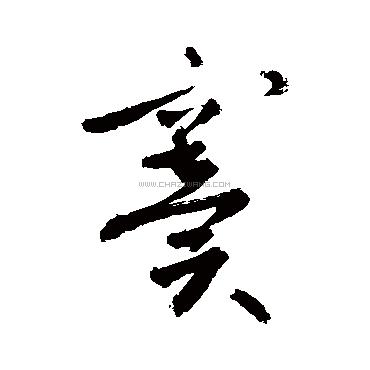 羹
WWW.CHAZIWANG.COM